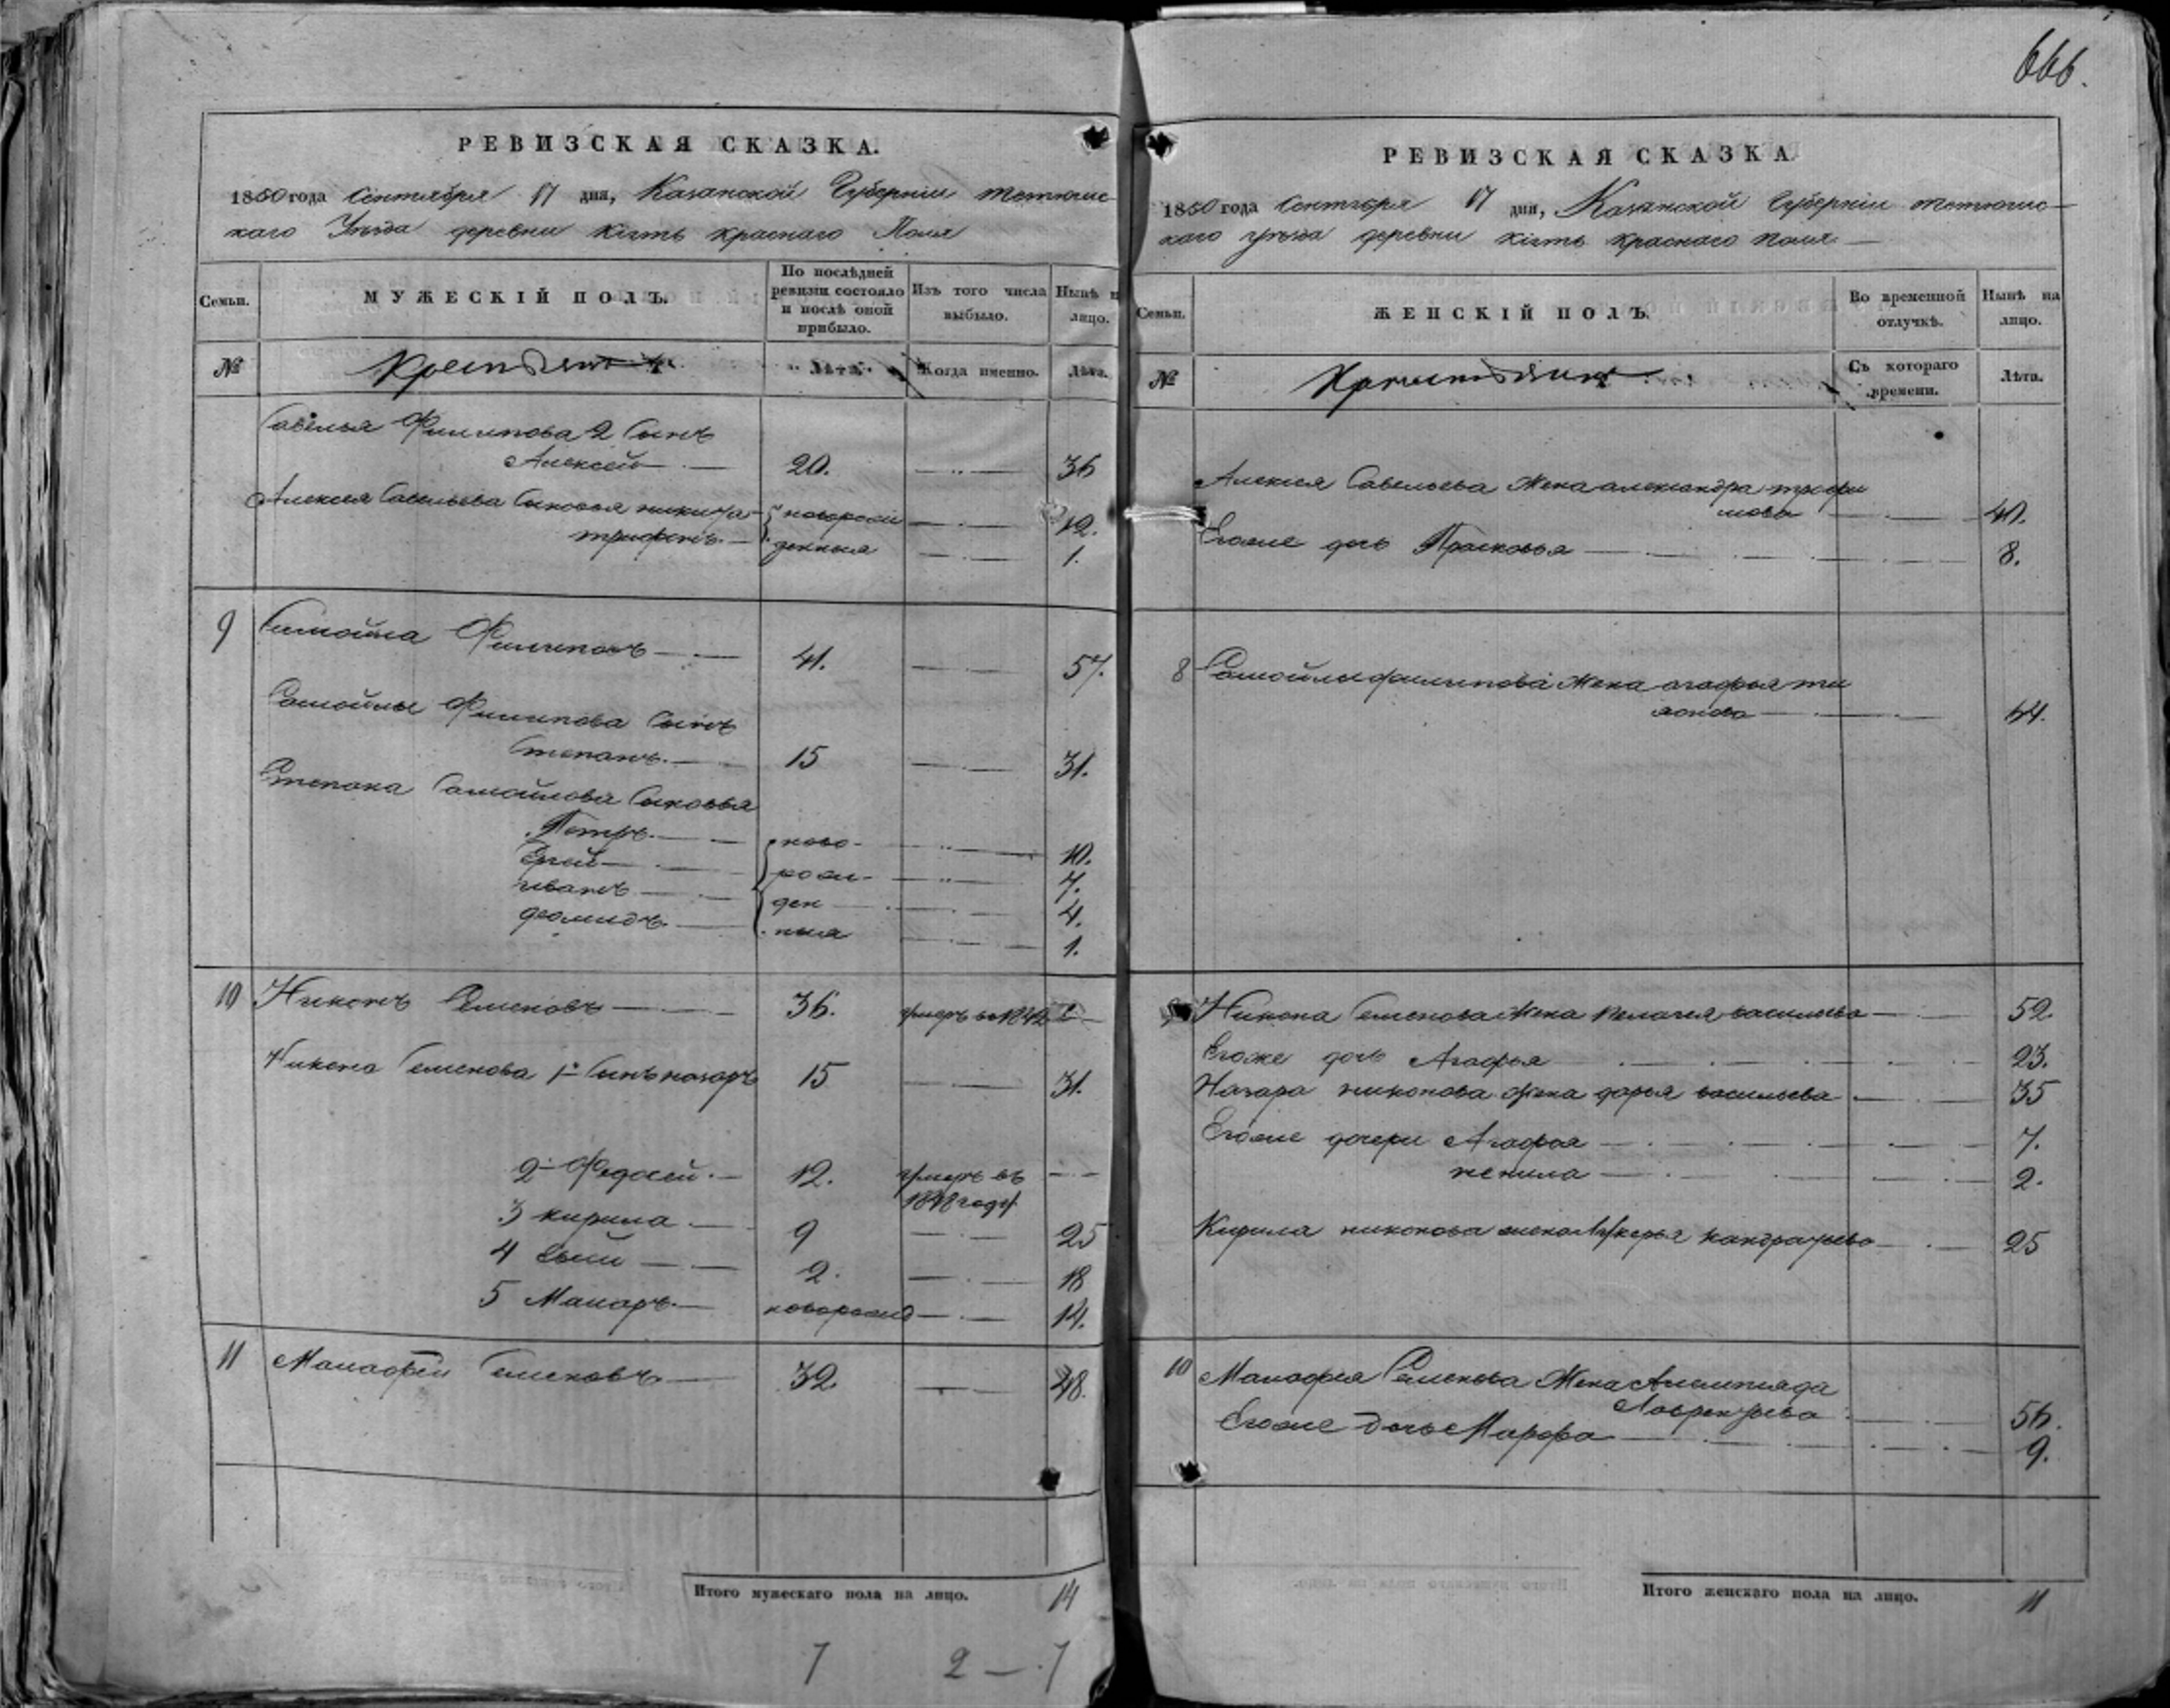 666.
РЕВИЗСКАЯ СКАЗКА.
1850 года Сентября 17 дня, Казанской Губернiи тетюшс-
каго Уѣзда деревни Кiять Краснаго Поля
Семьи.
МУЖЕСКIЙ ПОЛЪ.
По послѣдней ревизiи состояло и послѣ оной прибыло.
Изъ того числа выбыло.
Нынѣ на лицо.
№
Лѣта.
Когда именно.
Лѣта.
Савелья Филипова 2 Сынъ
Алексей 20. 36
Алексея Савельева Сыновья никита новорож 12.
трифонъ. денныя 1.
9 Самойла Филиповъ 41. 57.
Самойлы Филипова Сынъ
Степанъ. 15 31.
Степана Самойлова Сыновья
Петръ. ново- 10.
рож- 7.
иванъ ден 4.
диомидъ. ныя 1.
10 Никонъ Семеновъ 36. умеръ в 1842
Никона Семенова 1й Сынъ назаръ 15 31.
2й Федосей. 12. умеръ въ
1848 году
3 кирила 9 25
4 2. 18
5 Макаръ. новорожд 14.
11 Малафей Семеновъ 32. 48.
Итого мужескаго пола на лицо. 14
7 2 — 7
РЕВИЗСКАЯ СКАЗКА
1850 года Сентября 17 дня, Казанской Губернiи тетюшс-
каго уѣзда деревни Кiять Краснаго поля
Семьи.
ЖЕНСКIЙ ПОЛЪ.
Во временной отлучкѣ.
Нынѣ на лицо.
№
Съ котораго времени.
Лѣта.
Алексея Савельева Жена александра трофи
мова 40.
Егоже дочь Прасковья 8.
8 Самойлы филипова Жена агафья
54.
Никона Семенова Жена пелагея васильева 52.
Егоже дочь Агафья 23.
Назара никонова жена дарья васильева 35
Егоже дочери Агафья 7.
ненила 2.
Кирила никонова жена Лукерья кандратьева 25
10 Малафея Семенова Жена
Лаврентьева 56.
Егоже дочь Марфа 9.
Итого женскаго пола на лицо. 11